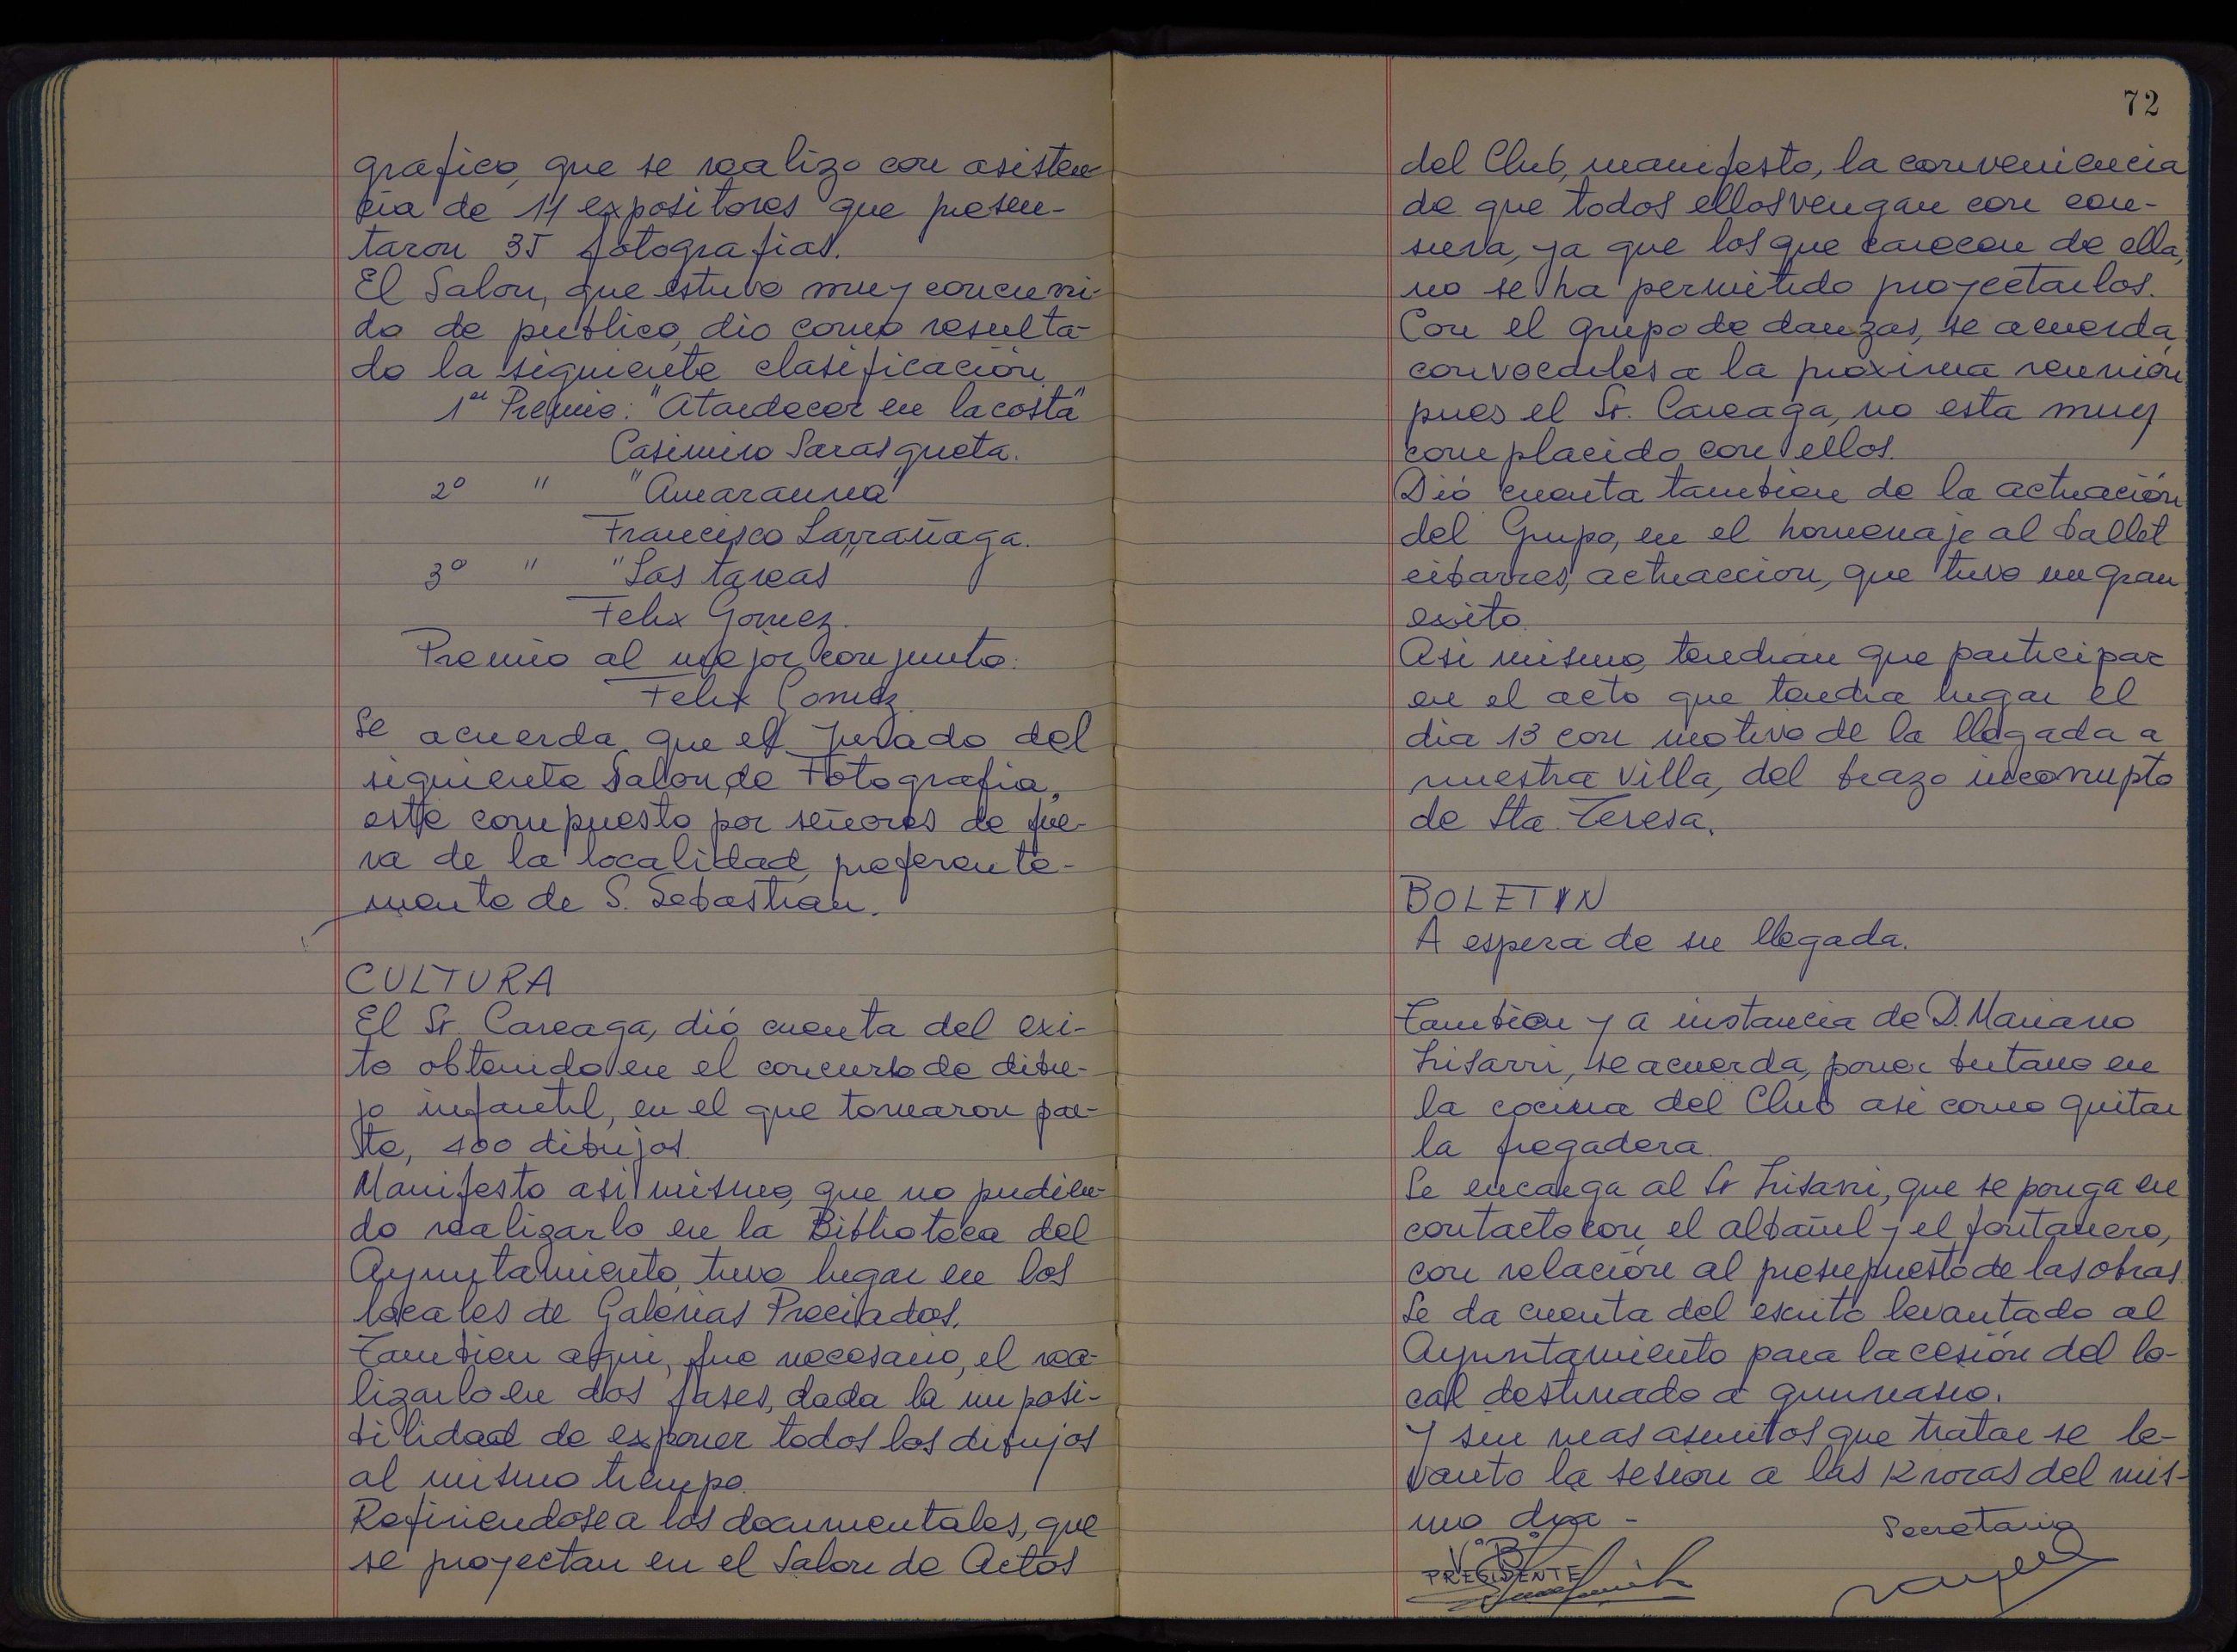 grafico, que se realizo con asisten-
cia de 11 expositores que presen-
taron 35 fotografias.
El Salon, que estuvo muy concurri-
do de publico, dio como resulta-
do la siguiente clasificación.
1er Premio: "Atardecer en la costa"
Casimiro Sarasqueta.
2º " "Amarauna"
Francisco Larrañaga.
3º " "Las tareas"
Felix Gomez.
Premio al mejor conjunto:
Felix Gomez.
Se acuerda que el Jurado del
siguiente Salon de Fotografia,
este compuesto por señores de fue-
ra de la localidad, preferente-
mente de S. Sebastian.
CULTURA
El Sr. Careaga, dió cuenta del exi-
to obtenido en el concurso de dibu-
jo infantil, en el que tomaron par-
te, 400 dibujos.
Manifesto asi mismo, que no pudien-
do realizarlo en la Biblioteca del
Ayuntamiento, tuvo lugar en los
locales de Galerias Preciados.
Tambien aqui, fue necesario, el rea-
lizarlo en dos fases, dada la imposi-
bilidad de exponer todos los dibujos
al mismo tiempo.
Refiriendose a los documentales, que
se proyectan en el Salon de Actos
72
del Club, manifesto, la conveniencia
de que todos ellos vengan con cen-
sura, ya que los que carecen de ella,
no se ha permitido proyectarlos.
Con el grupo de danzas, se acuerda,
convocarles a la próxima reunión
pues el Sr. Careaga, no esta muy
complacido con ellos.
Dió cuenta tambien de la actuación
del Grupo, en el homenaje al ballet
eibarres, actuaccion, que tuvo un gran
exito.
Asi mismo, tendrian que participar
en el acto que tendria lugar el
dia 13 con motivo de la llegada a
nuestra villa, del brazo incorrupto
de Sta. Teresa.
BOLETIN
A espera de su llegada.
Tambien y a instancia de D. Mariano
Lisarri, se acuerda, poner butano en
la cocina del Club asi como quitar
la fregadera.
Se encarga al Sr Lisarri, que se ponga en
contacto con el albañil y el fontanero,
con relación al presupuesto de las obras.
Se da cuenta del escrito levantado al
Ayuntamiento para la cesión del lo-
cal destinado a gimnasio.
Y sin mas asuntos que tratar se le-
vanto la sesion a las 12 horas del mis-
mo dia -
Secretario
VºBº
PRESIDENTE